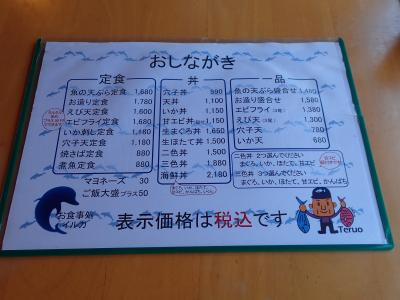 おしながき
定食
魚の天ぷら定食 1,680
お造り定食 1,780
えび天定食 1,600
エビフライ定食 1,680
いか刺し定食 1,180
穴子天定食 1,180
焼さば定食 880
煮魚定食 880
マヨネーズ 30
ご飯大盛プラス50
丼
穴子丼 990
天丼 1,100
いか丼 1,150
甘エビ丼 1,500
生まぐろ丼 1,650
生ほたて丼 1,500
二色丼 1,500
三色丼 1,880
海鮮丼 2,180
一品
魚の天ぷら盛合せ 1,480
お造り盛合せ 1,580
エビフライ 1,380
えび天 1,300
穴子天 780
いか天 680
二色丼 2つ選んでください
まぐろ、いか、ほたて、甘エビ
三色丼 3つ選んでください
まぐろ、いか、ほたて、甘エビ、かんぱち
お食事処
イルカ
表示価格は税込です
Teruo